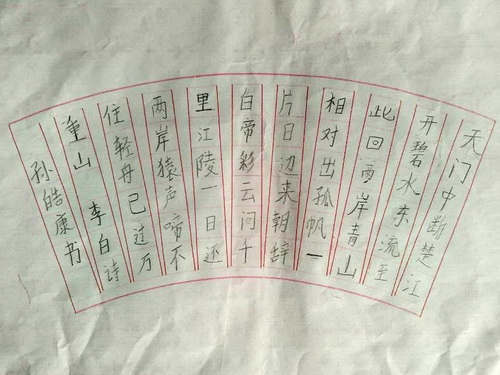 天门中断楚江
开碧水东流至
此回两岸青山
相对出孤帆一
片日边来朝辞
白帝彩云间千
里江陵一日还
两岸猿声啼不
住轻舟已过万
重山 李白诗
孙皓康书